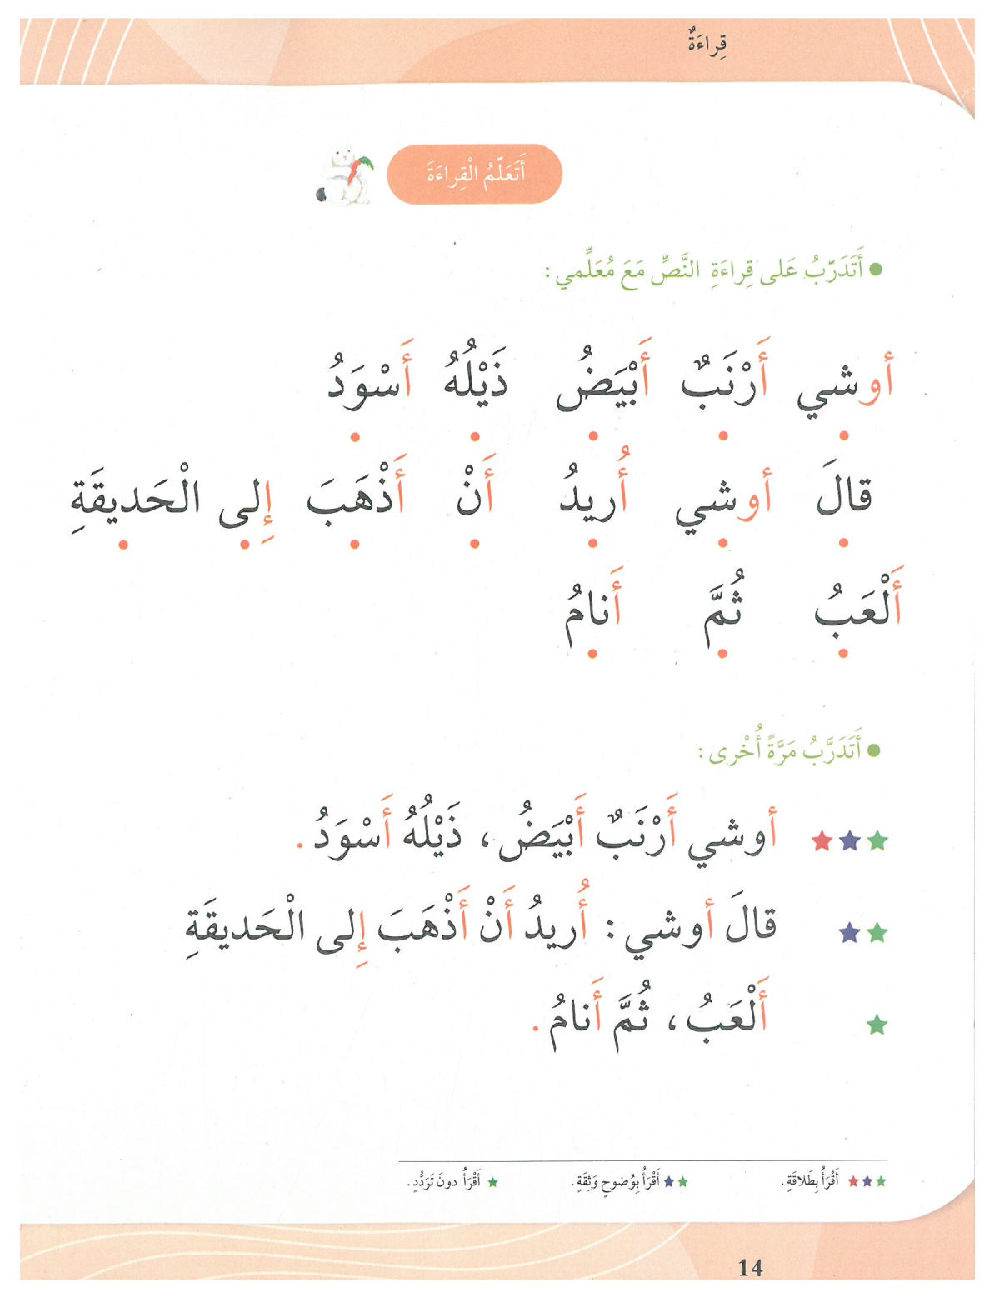 قِراءَةٌ
أَتَعَلَّمُ الْقِراءَةَ
● أَتَدَرَّبُ عَلى قِراءَةِ النَّصِّ مَعَ مُعَلِّمي :
أوشي أَرْنَبٌ أَبْيَضُ ذَيْلُهُ أَسْوَدُ
قالَ أوشي أُريدُ أَنْ أَذْهَبَ إِلى الْحَديقَةِ
أَلْعَبُ ثُمَّ أَنامُ
● أَتَدَرَّبُ مَرَّةً أُخْرى :
أوشي أَرْنَبٌ أَبْيَضُ، ذَيْلُهُ أَسْوَدُ.
قالَ أوشي : أُريدُ أَنْ أَذْهَبَ إِلى الْحَديقَةِ
أَلْعَبُ، ثُمَّ أَنامُ.
★★★ أَقْرَأُ بِطَلاقَةٍ. ★★ أَقْرَأُ بِوُضوحٍ وَثِقَةٍ. ★ أَقْرَأُ دونَ تَرَدُّدٍ.
14